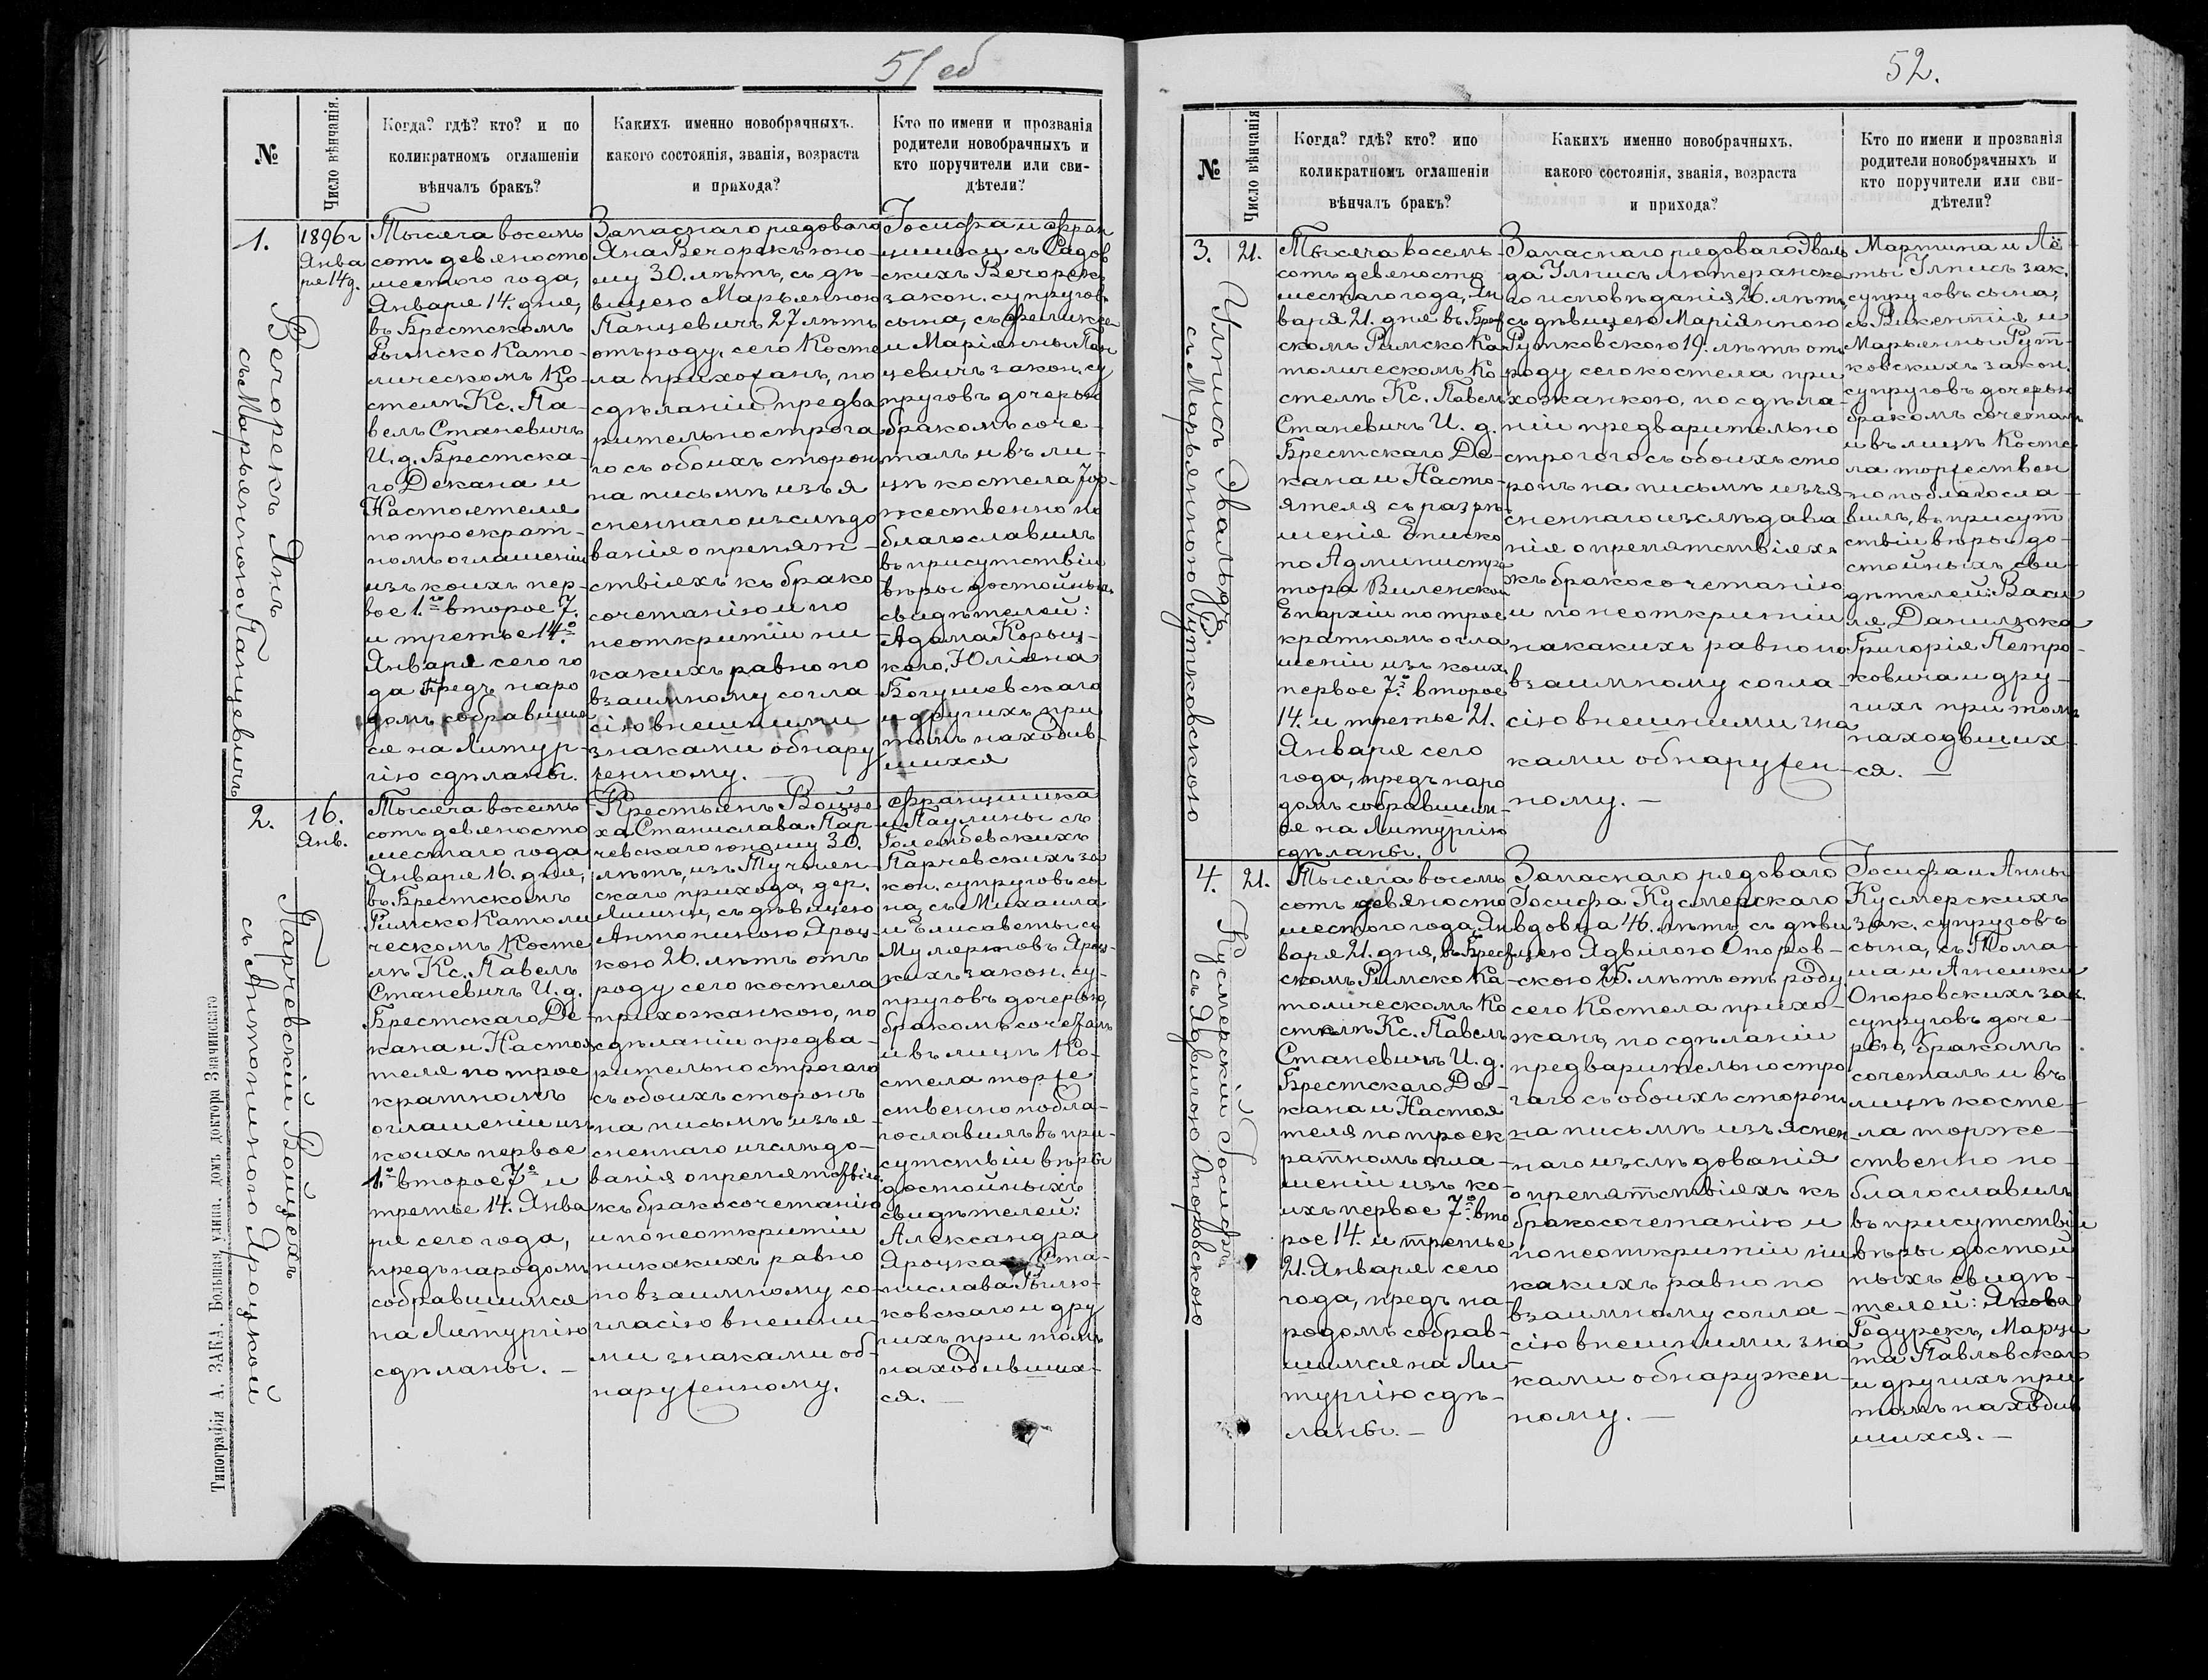 51 об
№
Число вѣнчанія.
Когда? гдѣ? кто? и по
коликратномъ оглашеніи
вѣнчалъ бракъ?
Какихъ именно новобрачныхъ.
какого состоянія, званія, возраста
и прихода?
Кто по имени и прозванія
родители новобрачныхъ и
кто поручители или сви-
дѣтели?
1.
Вечорекъ Янъ
съ Марьянною Панцевичъ
1896 г
Янва
ря 14 д.
Тысяча восемь
сотъ девяносто
шестого года,
Января 14. дня,
въ Брестскомъ
Римско Като-
лическомъ Ко-
стелѣ Кс. Па-
велъ Станевичъ
И. д. Брестска-
го Декана и
Настоятеля
по троекрат-
номъ оглашеніи
изъ коихъ пер-
вое 1.го второе 7.
и третье 14.о
Января сего го
да предъ наро
домъ собравшим
ся на Литур-
гію сдѣланы.
Запаснаго рядоваго
Яна Вечорекъ юно-
шу 30. лѣтъ, съ дѣ-
вицею Марьянною
Панцевичъ 27 лѣтъ
отъ роду, сего Косте
ла прихожанъ, по
сдѣланіи предва
рительно строга
го съ обоихъ сторонъ
на письмѣ изъя
сненнаго изслѣдо
ванія о препят-
ствіяхъ къ брако
сочетанію и по
неоткрытіи ни
какихъ равно по
взаимному согла
сію внешними
знаками обнару
женному. —
Іосифа и Фран
цишки съ Садов
скихъ Вечорекъ
закон. супруговъ
сына, съ Феликса
и Маріанны Пан
цевичъ закон. су
пруговъ дочерью
бракомъ соче-
талъ и въ ли-
цѣ костела тор-
жественно по
благославилъ
въ присутствіи
вѣры достойныхъ
свидѣтелей:
Адама Корыц-
кого, Юліана
Богушевскаго
и другихъ при
томъ находив-
шихся
2.
Парчевскій Войцехъ
съ Антониною Яроцкой
16.
Янв.
Тысяча восемь
сотъ девяносто
шестаго года
Января 16. дня,
въ Брестскомъ
Римско Католи
ческомъ Косте
лѣ Кс. Павелъ
Станевичъ И. д.
Брестскаго Де-
кана и Настоя
теля по трое
кратномъ
оглашеніи изъ
коихъ первое
1.о второе 7о и
третье 14. Янва
ря сего года,
предъ народомъ
собравшимся
на Литургію
сдѣланы. —
Крестьянъ Войце
ха Станислава Пар
чевскаго юношу 30.
лѣтъ, изъ Тучнен-
скаго прихода, дер.
съ дѣвицею
Антониною Яроц-
кою 26. лѣтъ отъ
роду сего костела
прихожанкою, по
сдѣланіи предва-
рительно строгаго
съ обоихъ сторонъ
на письмѣ изъя-
сненнаго изслѣдо-
ванія о препятствія
къ бракосочетанію
и по неоткрытіи
никакихъ равно
по взаимному со-
гласію внешни-
ми знаками об-
наруженному.
Францишка
и Паулины съ
Голембевскихъ
Парчевскихъ за
кон. супруговъ сы
на, съ Михаила
и Елисаветы съ
Мулертовъ Яроц-
кихъ закон. су-
пруговъ дочерью
бракомъ сочеталъ
и въ лицѣ Ко-
стела торже
ственно побла-
гославилъ въ при-
сутствіи вѣры
достойныхъ
свидѣтелей:
Александра
Яроцка Ста-
нислава
ковскаго и дру
гихъ при томъ
находивших-
ся. —
Типографія А. ЗАКА. Большая улица. домъ доктора Значинскаго
52.
№
Число вѣнчанія
Когда? гдѣ? кто? ипо
коликратномъ оглашеніи
вѣнчалъ бракъ?
Какихъ именно новобрачныхъ.
какого состоянія, званія, возраста
и прихода?
Кто по имени и прозванія
родители новобрачныхъ и
кто поручители или сви-
дѣтели?
3.
Улписъ Эвальдъ
съ Марьянною Рутковскою
21.
Тысяча восемь
сотъ девяносто
шестаго года, Ян
варя 21. дня въ Брест
скомъ Римско Ка
толическомъ Ко-
стелѣ Кс. Павелъ
Станевичъ И. д.
Брестскаго Де-
кана и Насто-
ятеля съ разрѣ-
шенія Еписко
по Администра
тора Виленской
Епархіи по трое
кратномъ огла
шеніи изъ коихъ
первое 7.о второе
14. и третье 21.
Января сего
года, предъ наро
домъ собравшим-
ся на Литургію
сдѣланы.
Запаснаго рядоваго Эваль
да Улписъ лютеранска
го исповѣданія 26. лѣтъ,
съ дѣвицею Маріянною
Рутковскою 19. лѣтъ отъ
роду сего костела при
хожанкою, по сдѣла-
ніи предварительно
строгого съ обоихъ сто
ронъ на письмѣ изъя-
сненнаго изслѣдава
нія о препятствіяхъ
къ бракосочетанію
и по неоткрытіи
накакихъ равно по
взаимному согла-
сію внешними зна
ками обнаружен-
ному. —
Мартина и Лё-
ты Улписъ зак.
супруговъ сына,
съ Викентія и
Марьянны Рут-
ковскихъ закон.
супруговъ дочерью
бракомъ сочеталъ
и въ лицѣ Косте
ла торжествен
но поблагосла-
вилъ, въ присут
ствіи вѣры до-
стойныхъ сви-
дѣтелей: Васи
ля Данилюка
Григорія Петро-
ковича и дру-
гихъ при томъ
находвших-
ся. —
4.
Кусмерскій Іосифъ
съ Ядвигою Опоровскою
21.
Тысяча восемь
сотъ девяносто
шестого года, Ян
варя 21. дня, въ Брест
скомъ Римско Ка
толическомъ Ко
стелѣ Кс. Павелъ
Станевичъ И. д.
Брестскаго Де-
кана и Настоя
теля по троек
ратномъ огла-
шеніи изъ ко-
ихъ первое 7.о вто
рое 14. и третье
21. Января сего
года, предъ на-
родомъ собрав-
шимся на Ли-
тургію сдѣ-
ланы. —
Запаснаго рядоваго
Іосифа Кусмерскаго
вдовца 46. лѣтъ съ дѣви
цею Ядвигою Опоров-
скою 25. лѣтъ отъ роду
сего Костела прихо-
жанъ, по сдѣланіи
предварительно стро
гаго съ обоихъ сторонъ
на письмѣ изъяснен
наго изслѣдованія
о препятствіяхъ къ
бракосочетанію и
по неоткрытіи ни
какихъ равно по
взаимному согла-
сію внешними зна
ками обнаружен-
ному. —
Іосифа и Анны
Кусмерскихъ
зак. супруговъ
сына, съ Тома-
ша и Агнешки
Опоровскихъ зак.
супруговъ доче-
рью, бракомъ
сочеталъ и въ
лицѣ косте-
ла торже-
ственно по-
благославилъ
въ присутствіи
вѣры достой
ныхъ свидѣ-
телей: Якова
Годурекъ, Марци
на Павловскаго
и другихъ при
томъ находив
шихся. —